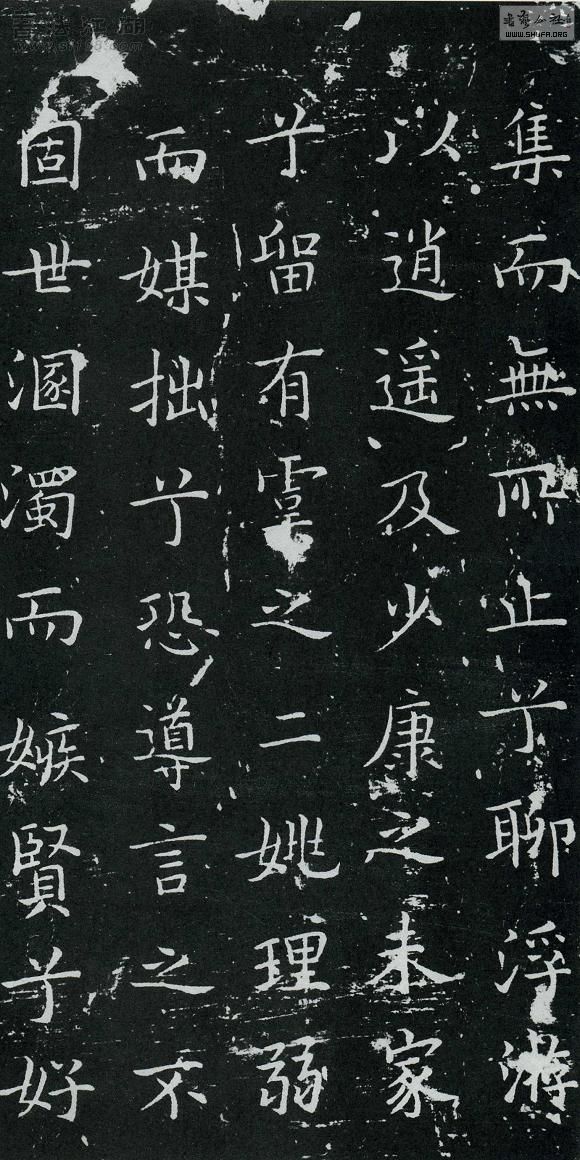 集而無所止兮聊浮游
以逍遥及少康之未家
兮留有虞之二姚理弱
而媒拙兮恐導言之不
固世溷濁而嫉賢兮好
WWW.SHUFA.ORG